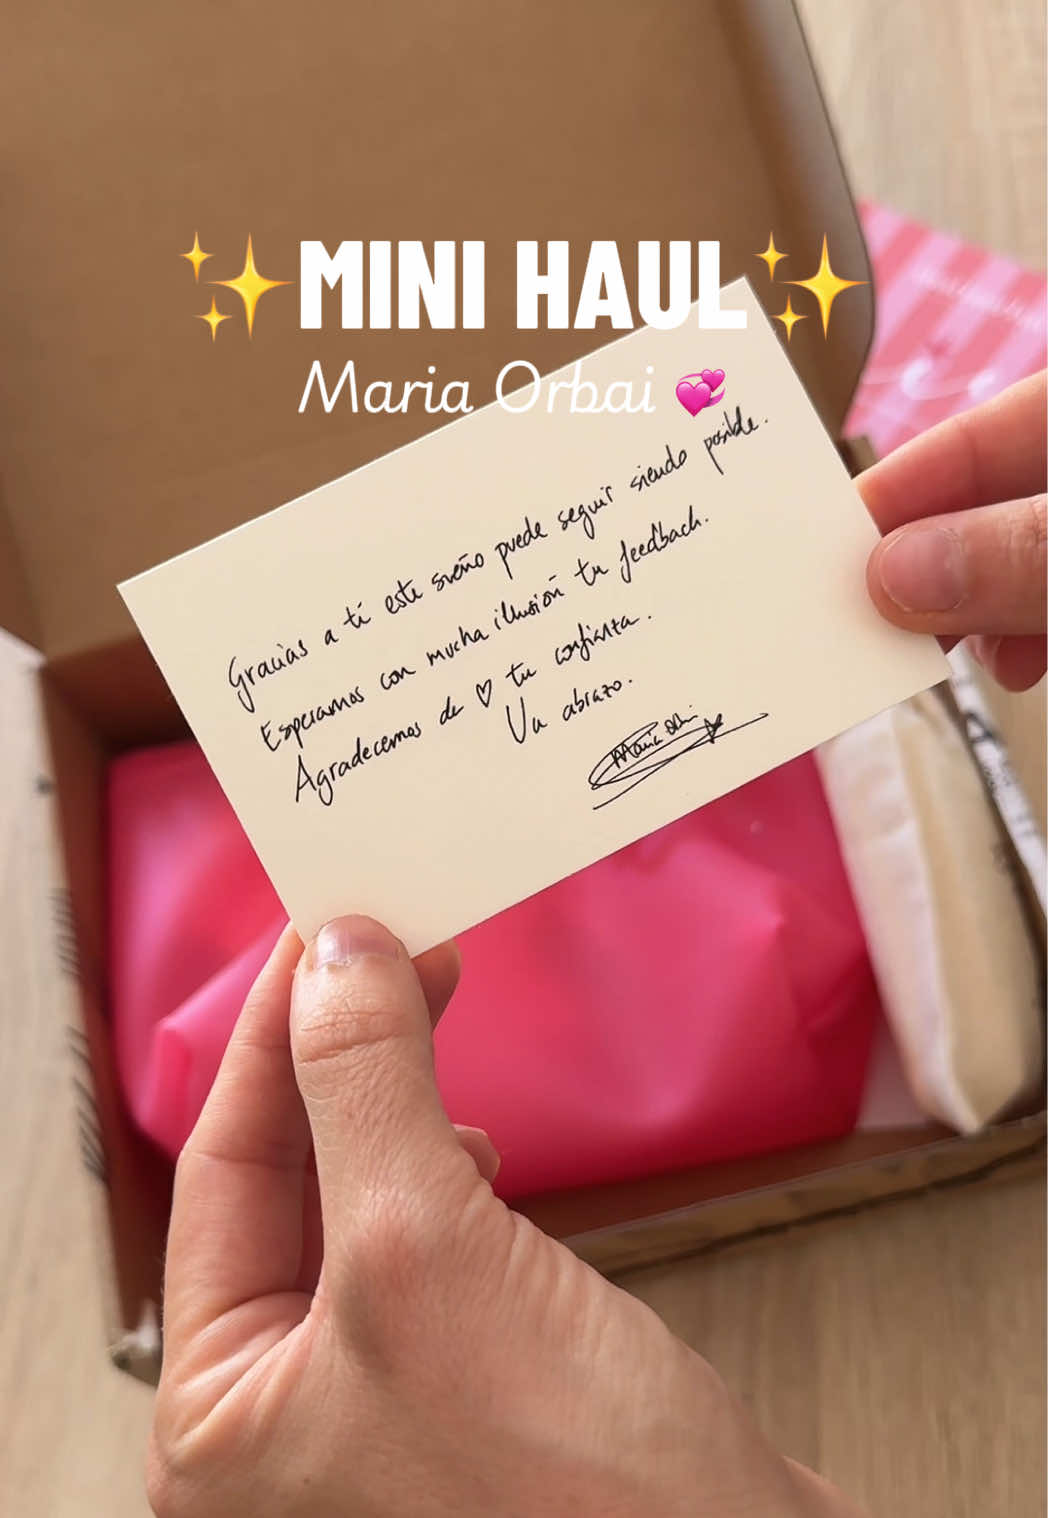 ✨MINI HAUL✨
Maria Orbai 💞
Gracias a ti este sueño puede seguir siendo posible.
Esperamos con mucha ilusión tu feedback.
Agradecemos de ♡ tu confianza.
Un abrazo.
Maria Orbai